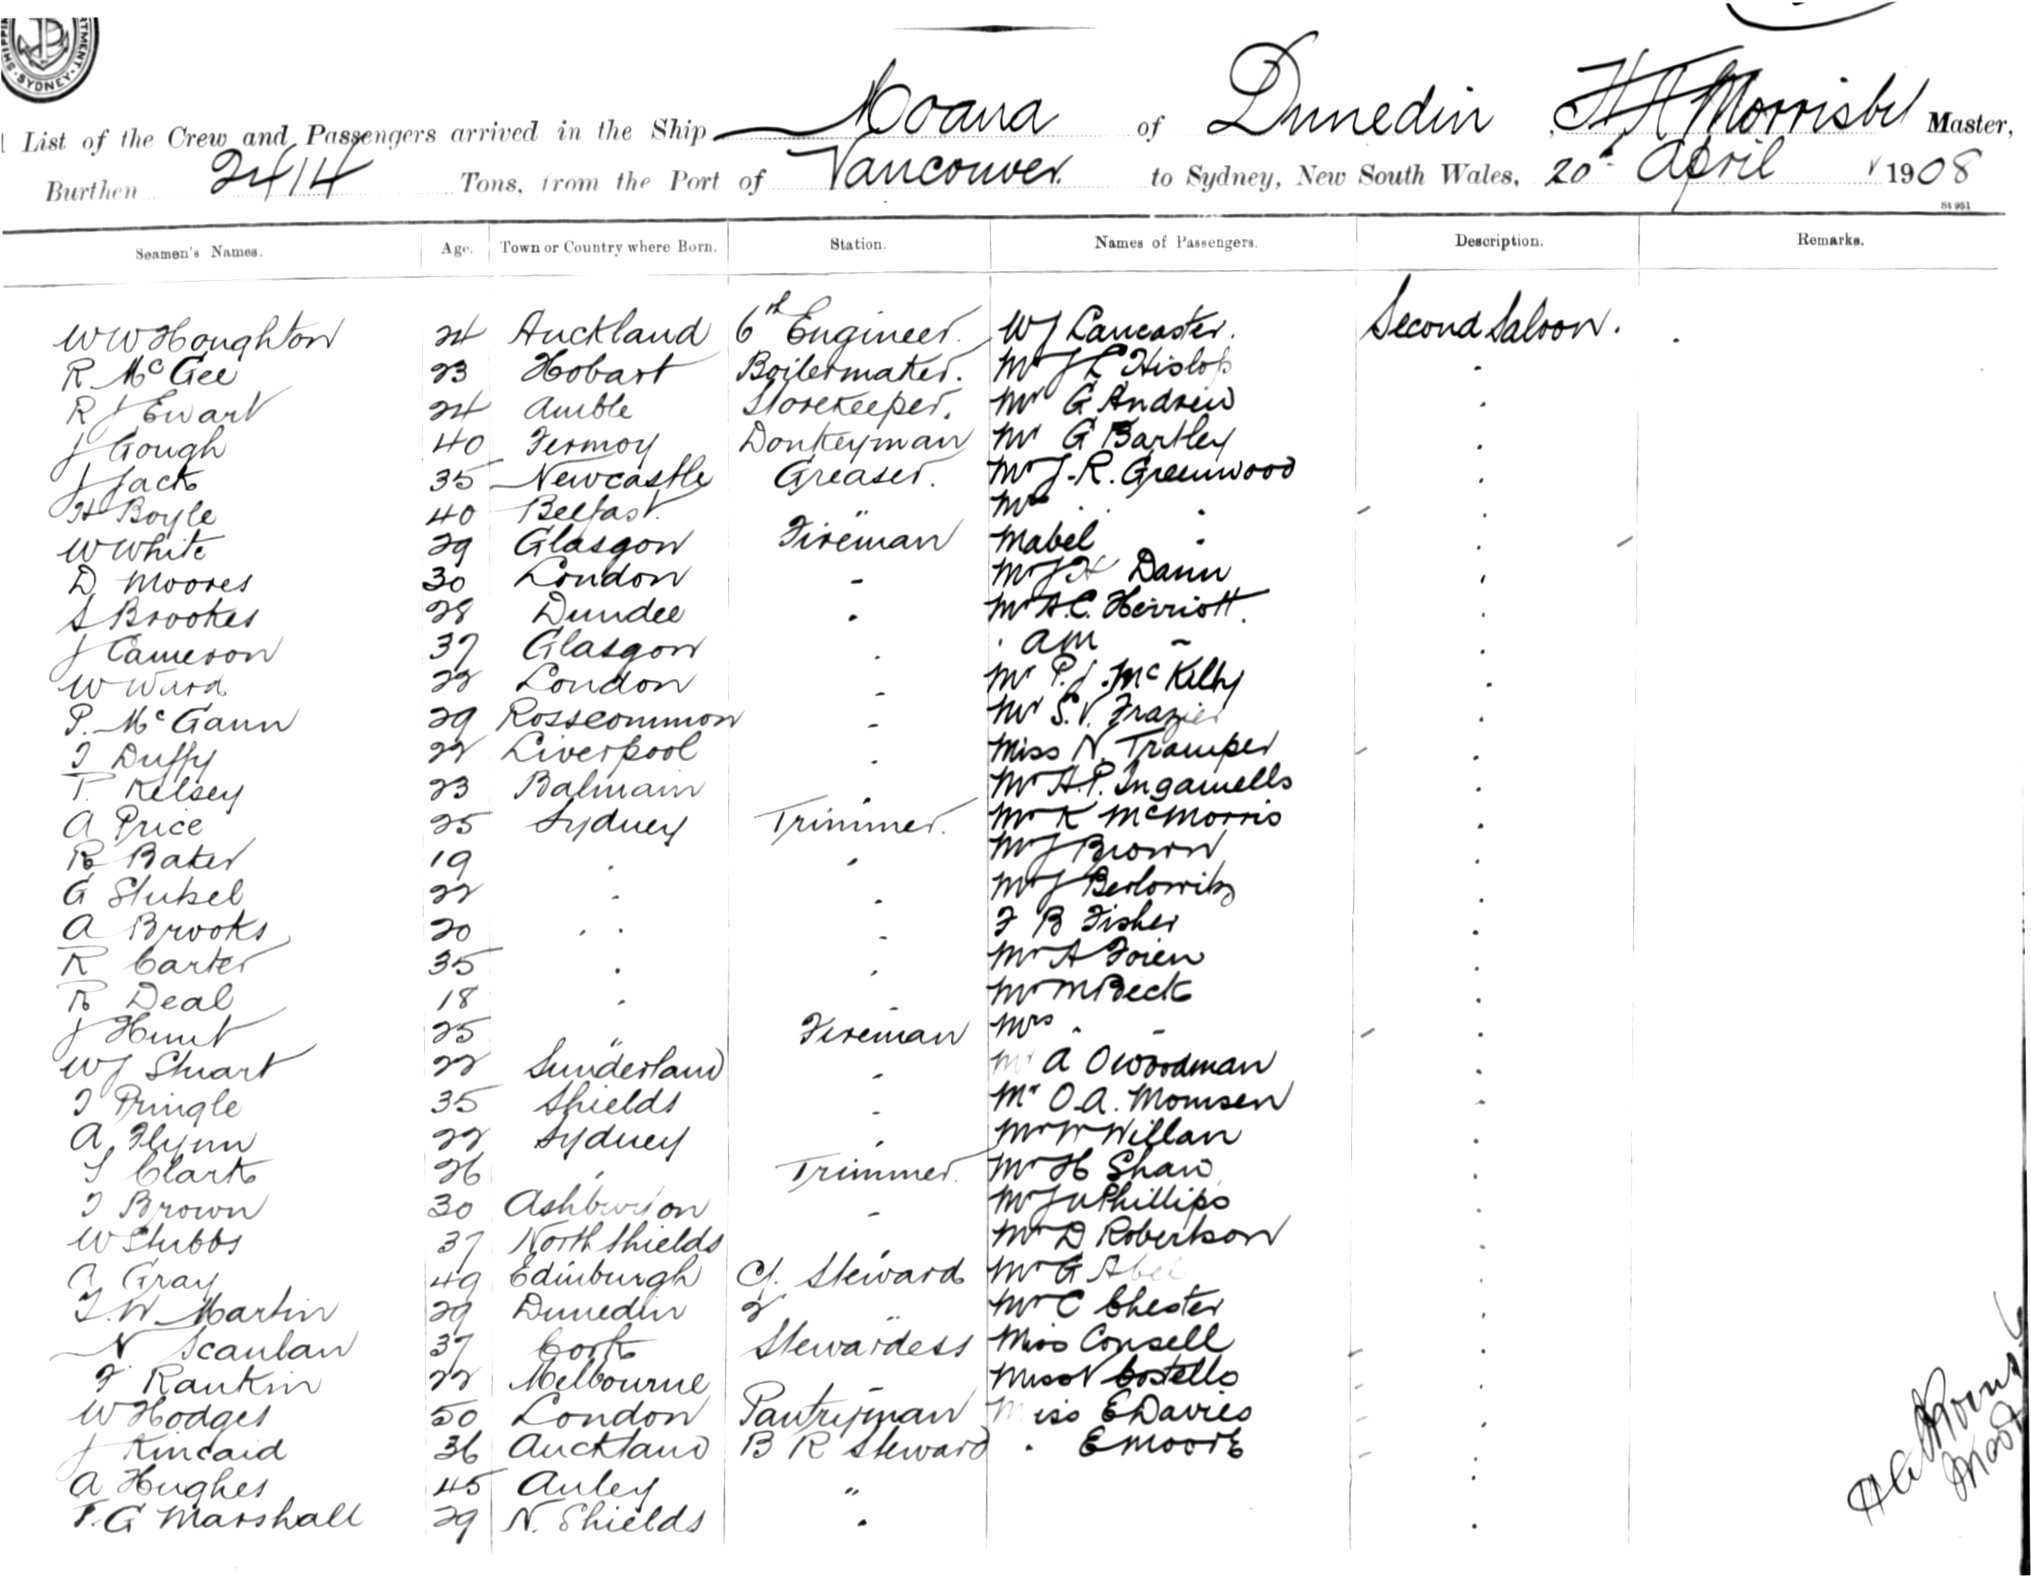 SHIPPING DEPARTMENT · SYDNEY ·
List of the Crew and Passengers arrived in the Ship Moana of Dunedin, Master,
Burthen 2414 Tons, from the Port of Vancouver to Sydney, New South Wales, 20 April 1908
St 951
Seamen's Names. Age. Town or Country where Born. Station. Names of Passengers. Description. Remarks.
W W Houghton 24 Auckland 6th Engineer. W J Lancaster. Second Saloon.
R McGee 23 Hobart Boilermaker. Mr J L Hislop "
R J Ewart 24 Amble Storekeeper. Mr G Andrew "
J Gough 40 Fermoy Donkeyman Mr G Bartley "
J Jack 35 Newcastle Greaser. Mr J. R. Greenwood "
H Boyle 40 Belfast. " Mrs " "
W White 29 Glasgow Fireman Mabel " "
D Moores 30 London " Mr J H Dann "
S Brookes 28 Dundee " Mr A. C. Herriott. "
J Cameron 37 Glasgow " " AM "
W Ward 22 London " Mr P. J. McKilby "
P. McGann 29 Rosscommon " Mr S. V. Frazier "
T Duffy 22 Liverpool " Miss N. Tramper "
T. Kelsey 23 Balmain " Mr A. P. Ingamells "
A Price 25 Sydney Trimmer. Mr K McMorris "
R Baker 19 " " Mr J Brown "
G 22 " " Mr J Berlowitz "
A Brooks 20 " " F B Fisher "
R Carter 35 " " Mr A "
R Deal 18 " " Mr M Beck "
J Hunt 25 " Fireman Mrs " "
W J Stuart 22 Sunderland " Mr A O Woodman "
T Pringle 35 Shields " Mr O. A. Momsen "
A Flynn 22 Sydney " Mr W Willan "
S Clark 26 " Trimmer. Mr H Shaw "
T Brown 30 " Mr J Phillips "
W Stubbs 37 North Shields " Mr D Robertson "
A Gray 49 Edinburgh Cf. Steward Mr G Abel "
T. W. Martin 29 Dunedin 2 " Mr C Chester "
N Scanlan 37 Cork Stewardess Miss Consell "
F Rankin 22 Melbourne " Miss N Costello "
W Hodges 50 London Pantryman Miss E Davies "
J Kincaid 36 Auckland B R Steward " E Moore "
A Hughes 45 " "
F. G Marshall 29 N. Shields " "